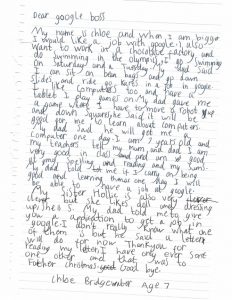 Dear google boss
My name is Chloe and when I am bigger
I would like a job with google. I also
want to work in a chocolate factory and
do swimming in the olympics. I go swimming
on Saturday and a Wednesday. My dad said
I can sit on bean bags and go down
slides and ride go karts in a job in google.
I like computers too and have a
tablet I play games on. My dad gave me
a game where I have to move a robot
and down squares, he said it will be
good for me to learn about computers.
My dad said he will get me a
computer one day. I am 7 years old and
my teachers tell my mum and dad I am
very good in class and am good
at my spelling and reading and my sums.
My dad told me if I carry on being
good and learning then one day I will
be able to have a job at google.
My sister Hollie is also very
clever but she likes doll dressing
up, she's 5. My dad told me to give
you a application to get a job in
google. I don't really know what one
of them is but he said a letter
will do for now. Thank you for
reading my letter, I have only ever sent
one other and that was to
Father christmas. Good bye.
Chloe Bridgewater Age 7